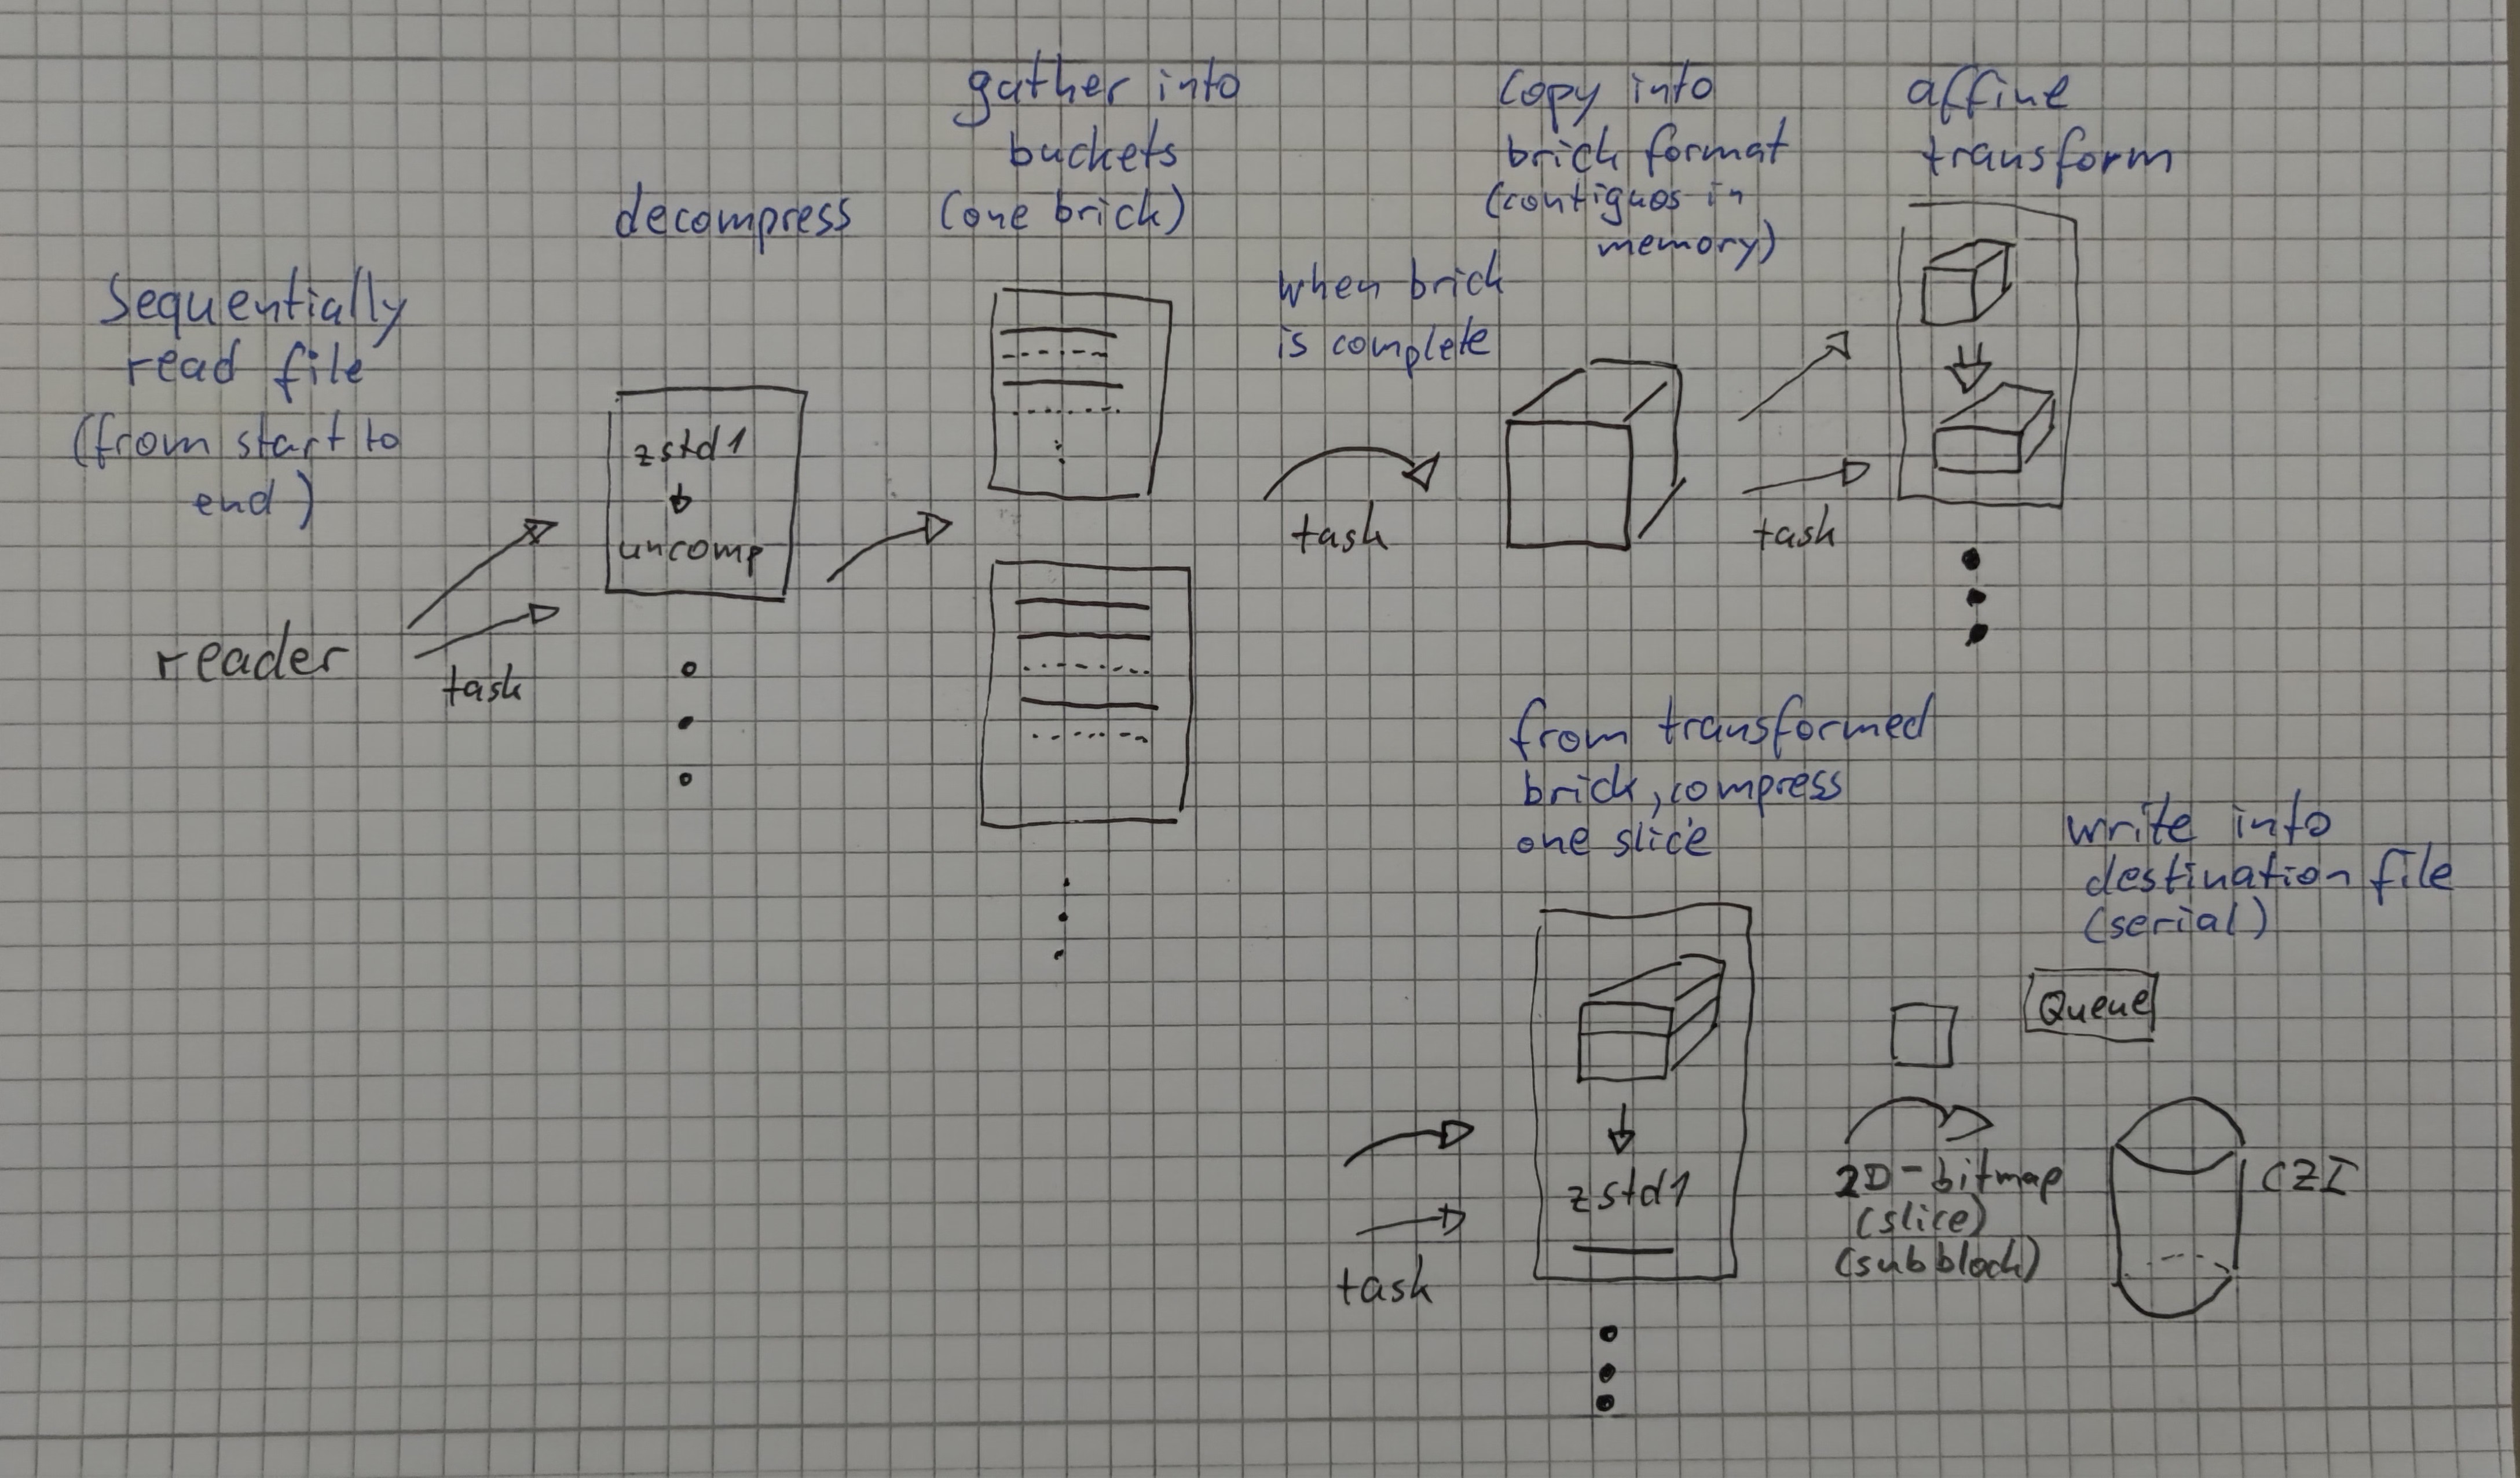 Sequentially
read file
(from start to
end)
reader
task
decompress
zstd1
uncomp
gather into
buckets
(one brick)
when brick
is complete
task
copy into
brick format
(contiguos in
memory)
task
affine
transform
from transformed
brick, compress
one slice
task
zstd1
2D-bitmap
(slice)
(subblock)
write into
destination file
(serial)
Queue
CZI